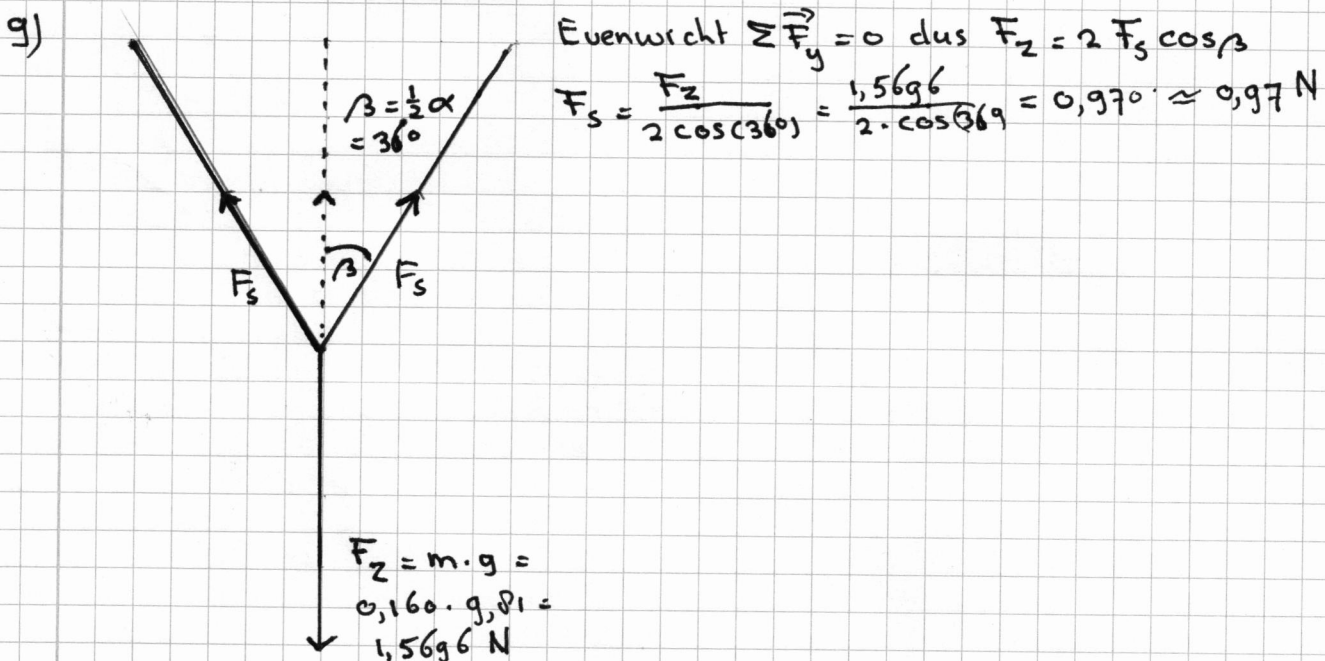 9)
Evenwicht Σ F⃗y = 0 dus Fz = 2 Fs cosβ
Fs = Fz / 2 cos(36°) = 1,5696 / 2 · cos(36°) = 0,970 ≈ 0,97 N
β = ½ α
= 36°
Fs
β
Fs
Fz = m · g =
0,160 · 9,81 =
1,5696 N